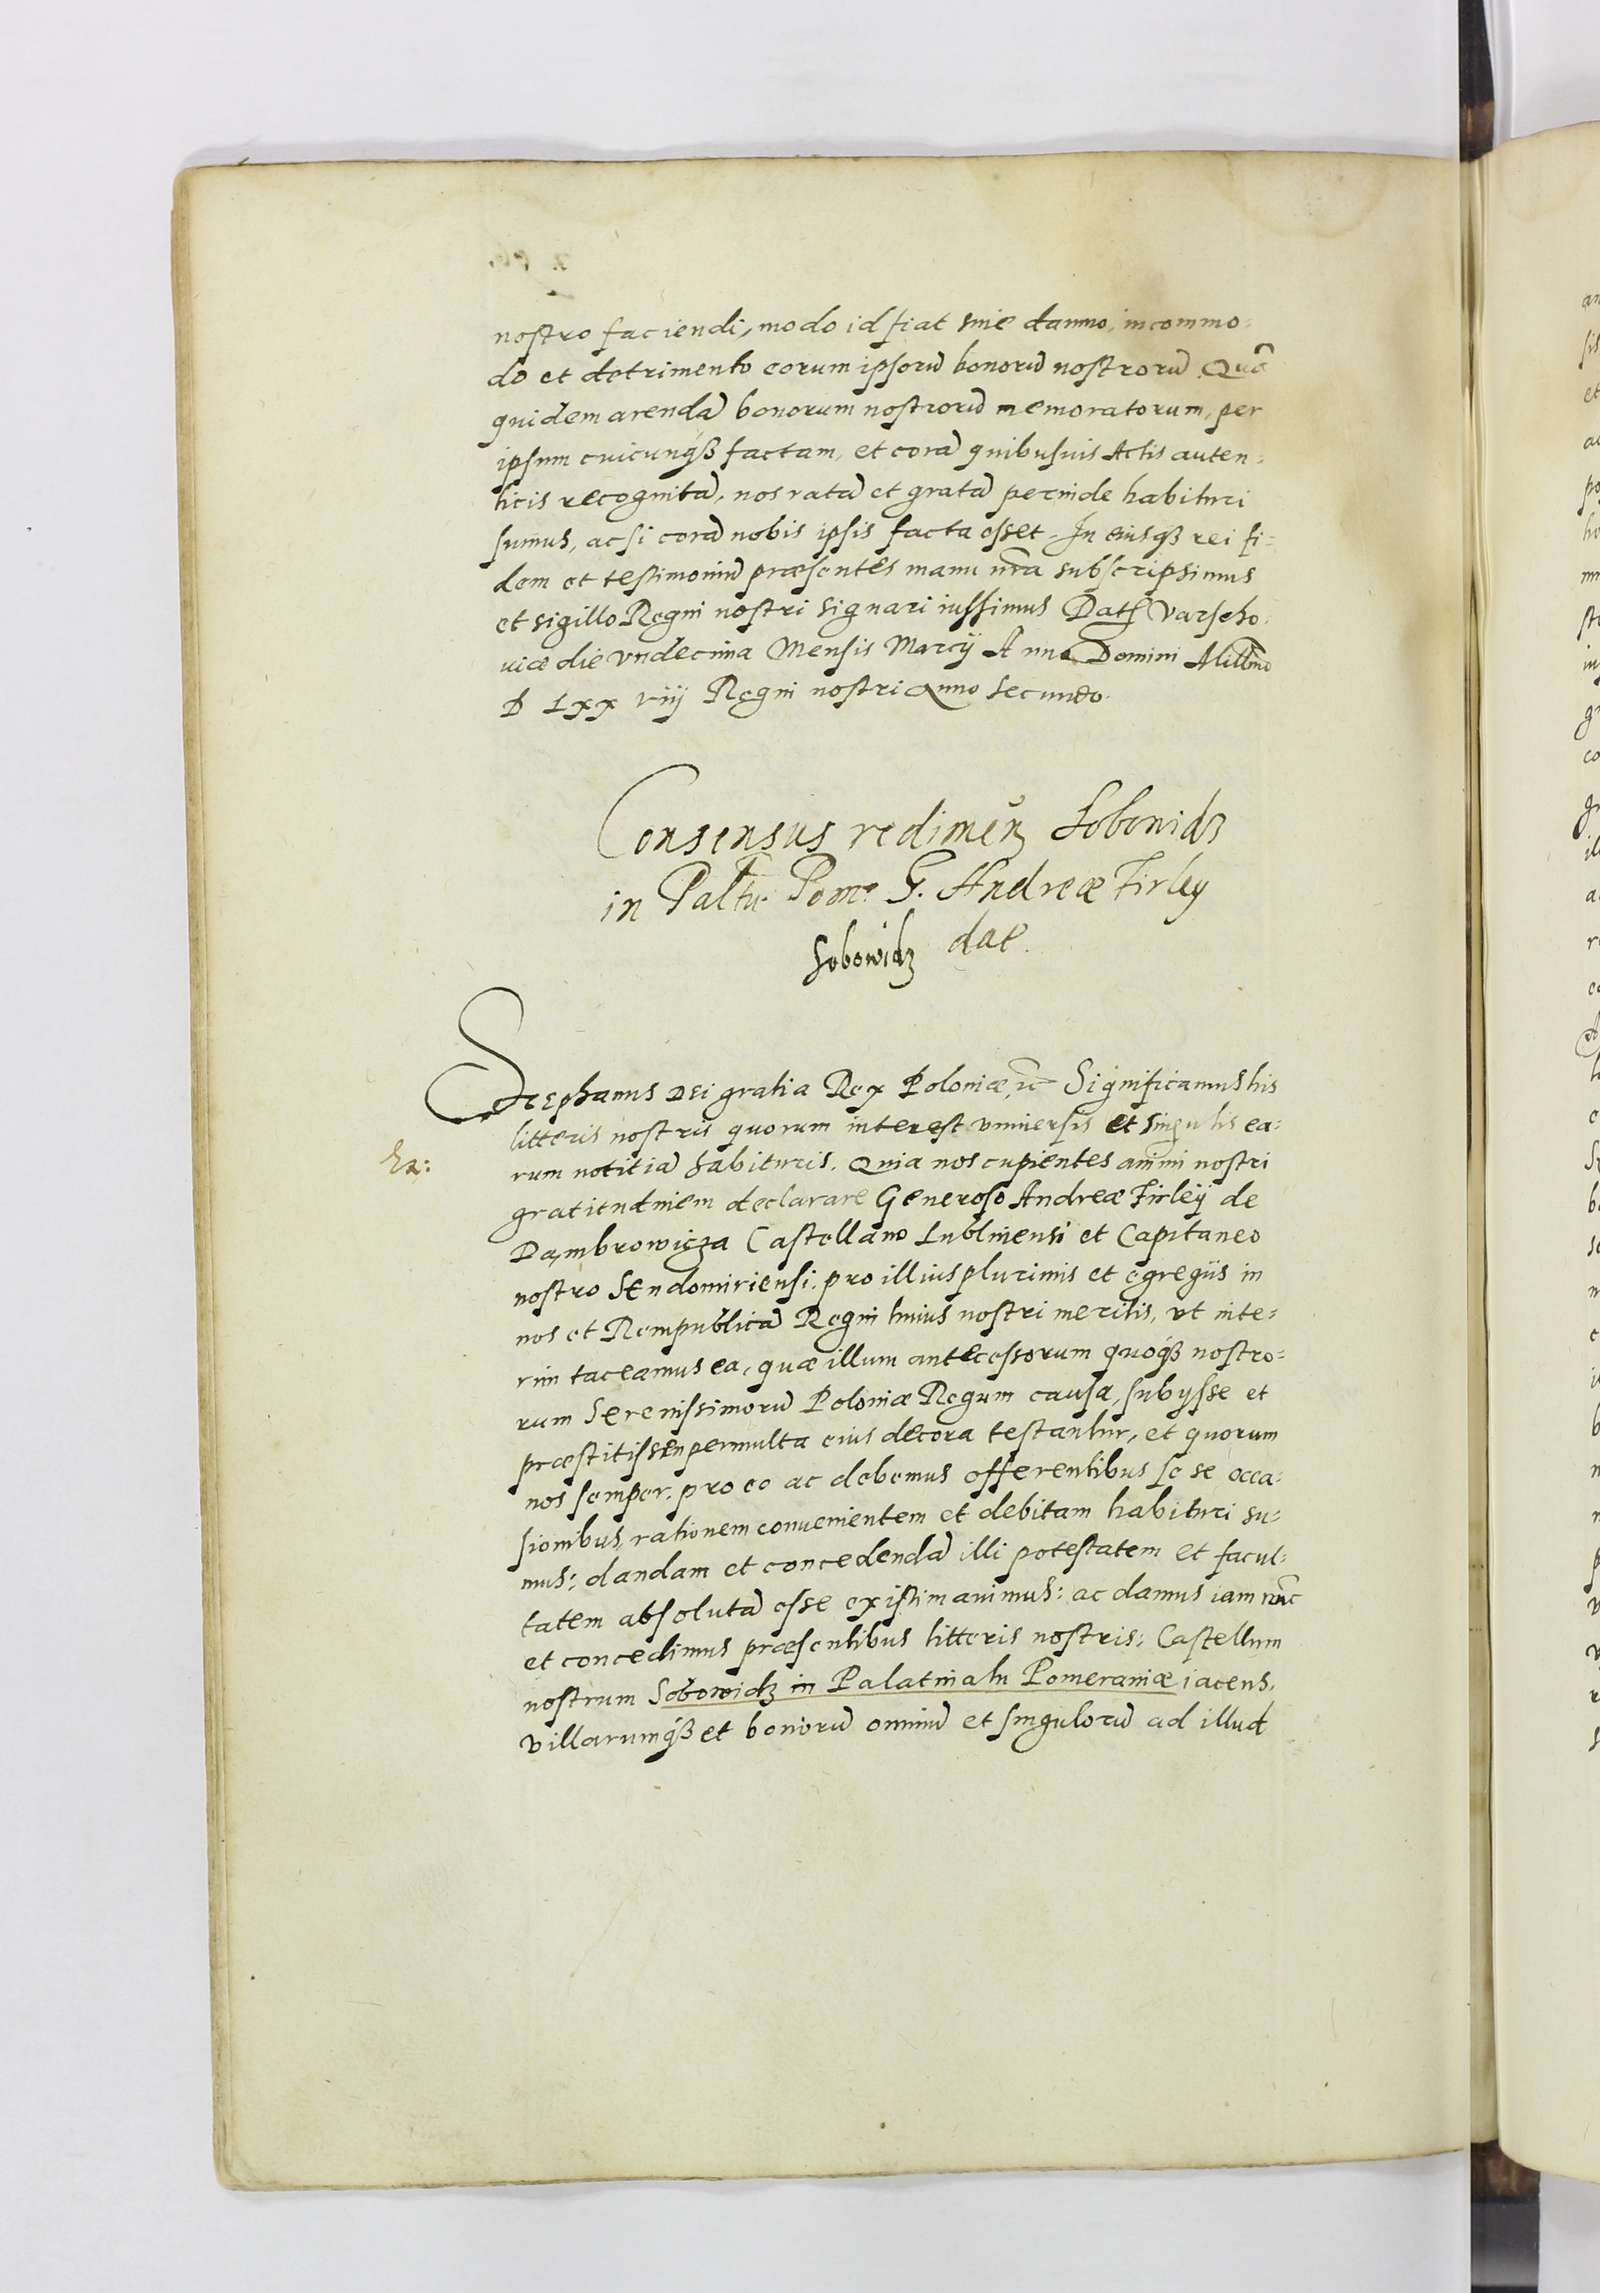 nostro faciendi, modo id fiat sine damno, incommo-
do et detrimento eorum ipsorū bonorū nostrorū. Quā
quidem arendā bonorum nostrorū memoratorum, per
ipsum cuicunqꝫ factam, et corā quibusuis Actis auten-
ticis recognitā, nos ratā et gratā perinde habituri
sumus, ac si corā nobis ipsis facta esset. In eiusqꝫ rei fi-
dem et testimoniū præsentes manu nr̃a subscripsimus
et sigillo Regni nostri signari iussimus Dat̃ Varscho-
uiæ die vndecima Mensis Marcij Anno Domini Millimo
D LXX viij Regni nostri Anno secundo.
Consensus redimen̄ Sobowidz
in Paltu. Pome. G. Andreæ Firley
Sobowidz dat̃.
Stephanus Dei gratia Rex Poloniæ, etc̃ Significamus his
litteris nostris quorum interest vniuersis et singulis ea-
rum notitiā habituris. Quia nos cupientes animi nostri
gratitudinem declarare Generoso Andreæ Firleij de
Dambrowicza Castellano Lublinensi et Capitaneo
nostro Sendomiriensi, pro illius plurimis et egregiis in
nos et Rempublicā Regni huius nostri meritis, vt inte-
rim taceamus ea, quæ illum antecessorum quoqꝫ nostro-
rum Serenissimorū Poloniæ Regum causa, subijsse et
præstitisse permulta eius decora testantur, et quorum
nos semper, pro eo ac debemus offerentibus se se occa-
sionibus, rationem conuenientem et debitam habituri su-
mus; dandam et concedendā illi potestatem et facul-
tatem absolutā esse existimauimus: ac damus iam nūc
et concedimus præsentibus litteris nostris; Castellum
nostrum Sobowidz in Palatinatu Pomeraniæ iacens,
villarumqꝫ et bonorū omniū et singulorū ad illud